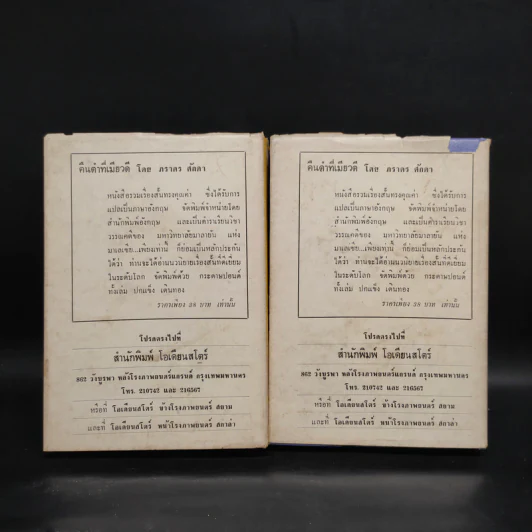 คืนค่ำที่เมียวดี โดย ภราดร ศักดา
หนังสือรวมเรื่องสั้นทรงคุณค่า ซึ่งได้รับการ
แปลเป็นภาษาอังกฤษ จัดพิมพ์จำหน่ายโดย
สำนักพิมพ์อังกฤษ และเป็นตำราเรียนวิชา
วรรณคดีของ มหาวิทยาลัยมาลายัน แห่ง
มาเลเซีย...เพียงเท่านี้ ก็ย่อมเป็นหลักประกัน
ได้ว่า ท่านจะได้อ่านนวนิยายเรื่องสั้นที่ดีเยี่ยม
ในระดับโลก จัดพิมพ์ด้วย กระดาษปอนด์
ทั้งเล่ม ปกแข็ง เดินทอง
ราคาเพียง 28 บาท เท่านั้น
โปรดตรงไปที่
สำนักพิมพ์ โอเดียนสโตร์
862 วังบูรพา หลังโรงภาพยนตร์แกรนด์ กรุงเทพมหานคร
โทร. 210742 และ 216567
หรือที่ โอเดียนสโตร์ ข้างโรงภาพยนตร์ สยาม
และที่ โอเดียนสโตร์ หน้าโรงภาพยนตร์ สกาล่า
คืนค่ำที่เมียวดี โดย ภราดร ศักดา
หนังสือรวมเรื่องสั้นทรงคุณค่า ซึ่งได้รับการ
แปลเป็นภาษาอังกฤษ จัดพิมพ์จำหน่ายโดย
สำนักพิมพ์อังกฤษ และเป็นตำราเรียนวิชา
วรรณคดีของ มหาวิทยาลัยมาลายัน แห่ง
มาเลเซีย...เพียงเท่านี้ ก็ย่อมเป็นหลักประกัน
ได้ว่า ท่านจะได้อ่านนวนิยายเรื่องสั้นที่ดีเยี่ยม
ในระดับโลก จัดพิมพ์ด้วย กระดาษปอนด์
ทั้งเล่ม ปกแข็ง เดินทอง
ราคาเพียง 28 บาท เท่านั้น
โปรดตรงไปที่
สำนักพิมพ์ โอเดียนสโตร์
862 วังบูรพา หลังโรงภาพยนตร์แกรนด์ กรุงเทพมหานคร
โทร. 210742 และ 216567
หรือที่ โอเดียนสโตร์ ข้างโรงภาพยนตร์ สยาม
และที่ โอเดียนสโตร์ หน้าโรงภาพยนตร์ สกาล่า